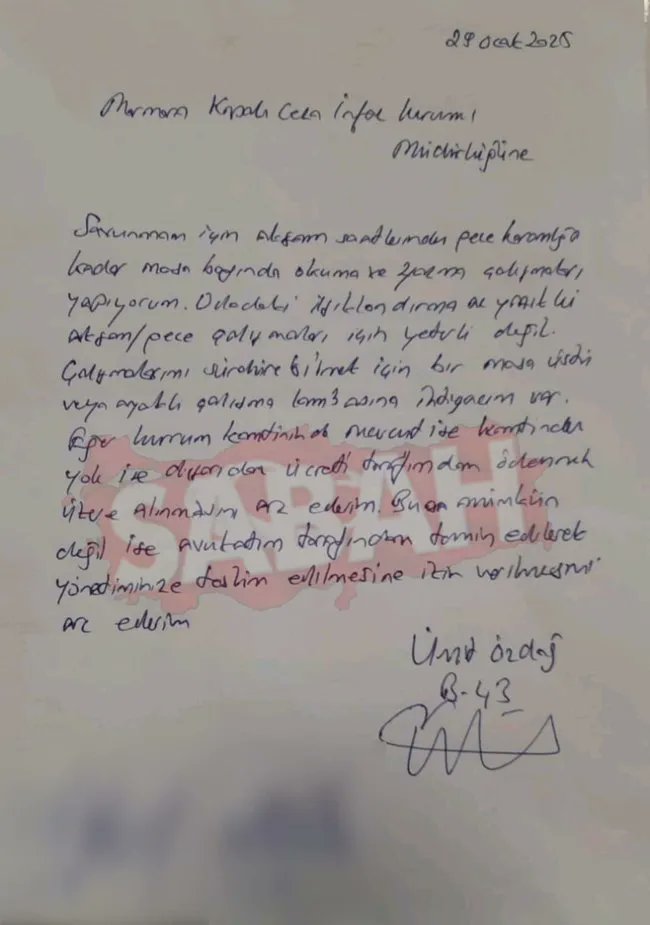 29 Ocak 2025
Marmara Kapalı Ceza İnfaz Kurumu
Müdürlüğüne
Savunmam için akşam saatlerinden gece karanlığa
kadar masa başında okuma ve yazma çalışmaları
yapıyorum. Odadaki ışıklandırma
akşam/gece çalışmaları için yeterli değil.
Çalışmalarımı sürdürebilmek için bir masa üstü
veya ayaklı çalışma lambasına ihtiyacım var.
Eğer kurum kantininde mevcut ise kantinden
yok ise dışarıdan ücreti tarafımdan ödenmek
üzere alınmasını arz ederim. Bu mümkün
değil ise avukatım tarafından temin edilerek
yönetiminize teslim edilmesine izin verilmesini
arz ederim
SABAH
Ümit Özdağ
B-43